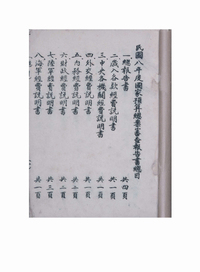 民國八年度國家預算總案審查報告書總目
一總報告書 共四頁
二歲入各款經費說明書 共一頁
三中央各機關經費說明書 共一頁
四外交經費說明書 共一頁
五內務經費說明書 共二頁
六財政經費說明書 共二頁
七陸軍經費說明書 共三頁
八海軍經費說明書 共一頁